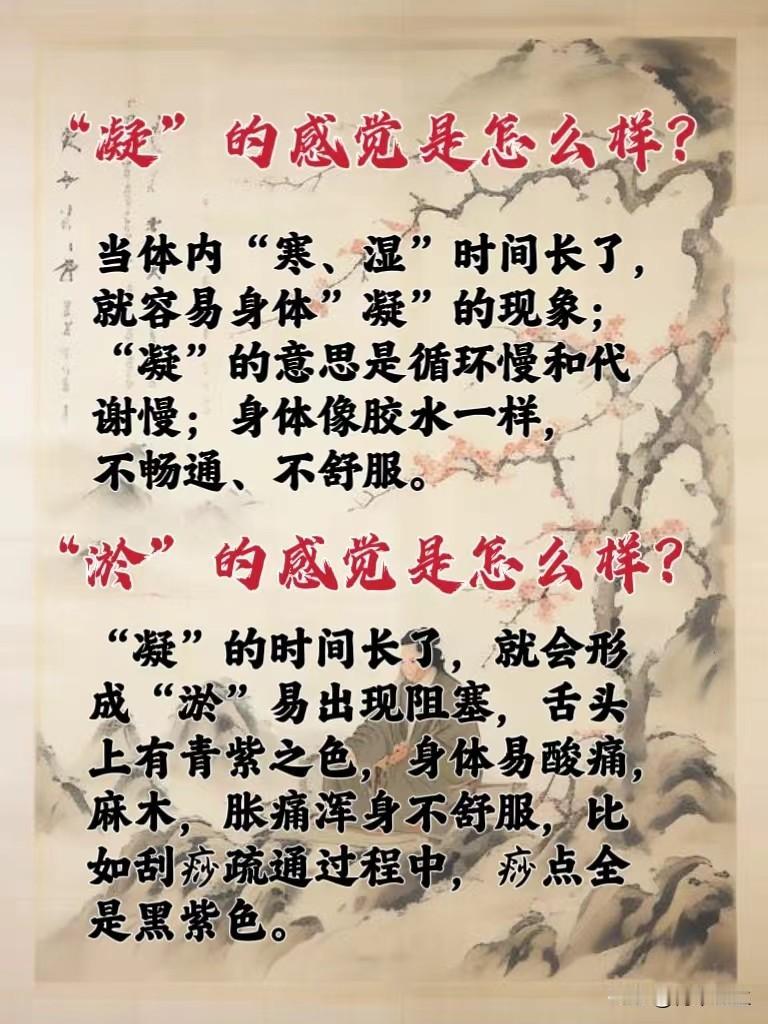 “凝”的感觉是怎么样?
当体内“寒、湿”时间长了，
就容易身体”凝”的现象；
“凝”的意思是循环慢和代
谢慢；身体像胶水一样，
不畅通、不舒服。
“淤”的感觉是怎么样?
“凝”的时间长了，就会形
成“淤”易出现阻塞，舌头
上有青紫之色，身体易酸痛，
麻木，胀痛浑身不舒服，比
如刮痧疏通过程中，痧点全
是黑紫色。